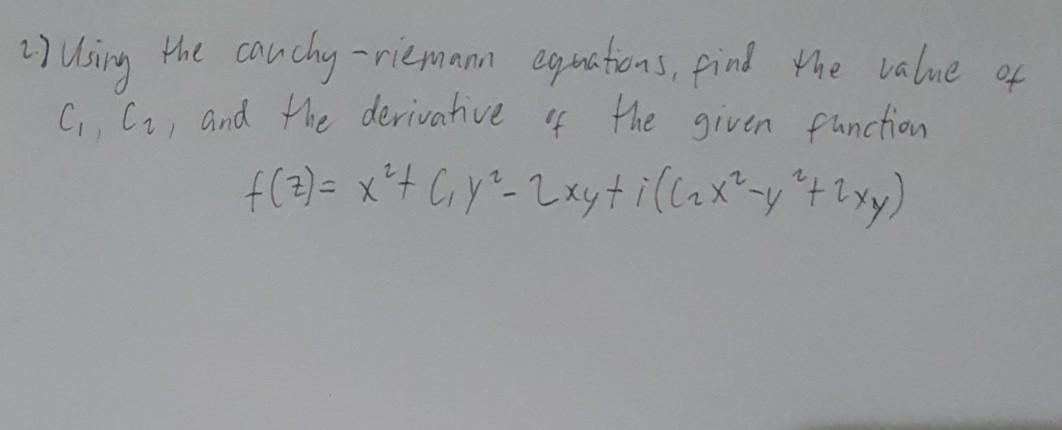 2.) Using the cauchy-riemann equations, find the value of
C₁, C₂, and the derivative of the given function
f(z) = x² + C₁y² - 2xy + i(C₂x² - y² + 2xy)